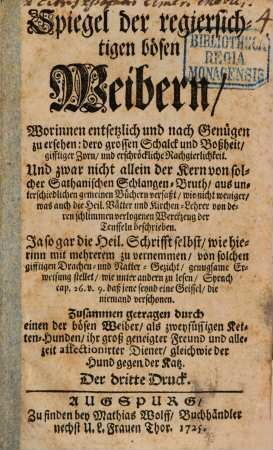 Spiegel der regiersich-
tigen bösen
Weibern/
BIBLIOTHECA
REGIA
MONACENSIS
Worinnen entsetzlich und nach Genügen
zu ersehen: dero grossen Schalck und Boßheit/
gifftiger Zorn/ und erschröckliche Rachgierlichkeit.
Und zwar nicht allein der Kern von sol-
cher Sathanischen Schlangen-Bruth/ aus un-
terschiedlichen gemeinen Büchern verfaßt/ wie nicht weniger/
was auch die Heil. Vätter und Kirchen-Lehrer von de-
ren schlimmen verlogenen Werckzeug der
Teuffeln beschrieben.
Ja so gar die Heil. Schrifft selbst/ wie hie-
rinn mit mehrerem zu vernemmen/ von solchen
gifftigen Drachen- und Natter-Gezicht/ genugsame Er-
weisung stellet/ wie unter andern zu lesen/ Syrach
cap. 26. v. 9. daß jene seynd eine Geissel/ die
niemand verschonen.
Zusammen getragen durch
einen der bösen Weiber/ als zweyfüssigen Ket-
ten-Hunden/ ihr groß geneigter Freund und alle-
zeit affectionirter Diener/ gleichwie der
Hund gegen der Katz.
Der dritte Druck.
AUGSPURG/
Zu finden bey Mathias Wolff/ Buchhändler
nechst U. L. Frauen Thor. 1725.